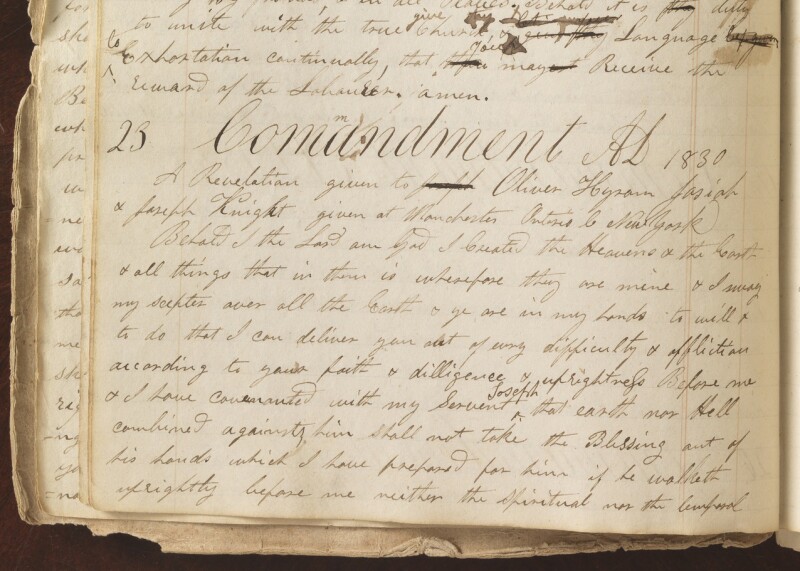 to unite with the true Church & give Language to
Exhortation continually, that you may Receive the
reward of the Labourer. amen.
23 Commandment AD 1830
A Revelation given to Oliver Hyram Josiah
& Joseph Knight given at Manchester Ontario C New York
Behold I the Lord am God I Created the Heavens & the Earth
& all things that in them is wherefore they are mine & I sway
my scepter over all the Earth & ye are in my hands to will &
to do that I can deliver you out of evry difficulty & affliction
according to your faith & dilligence & uprightness Before me
& I have covenanted with my Servent Joseph that earth nor Hell
combined against him shall not take the Blessing out of
his hands which I have prepared for him if he walketh
uprightly before me neither the spiritual nor the temporal